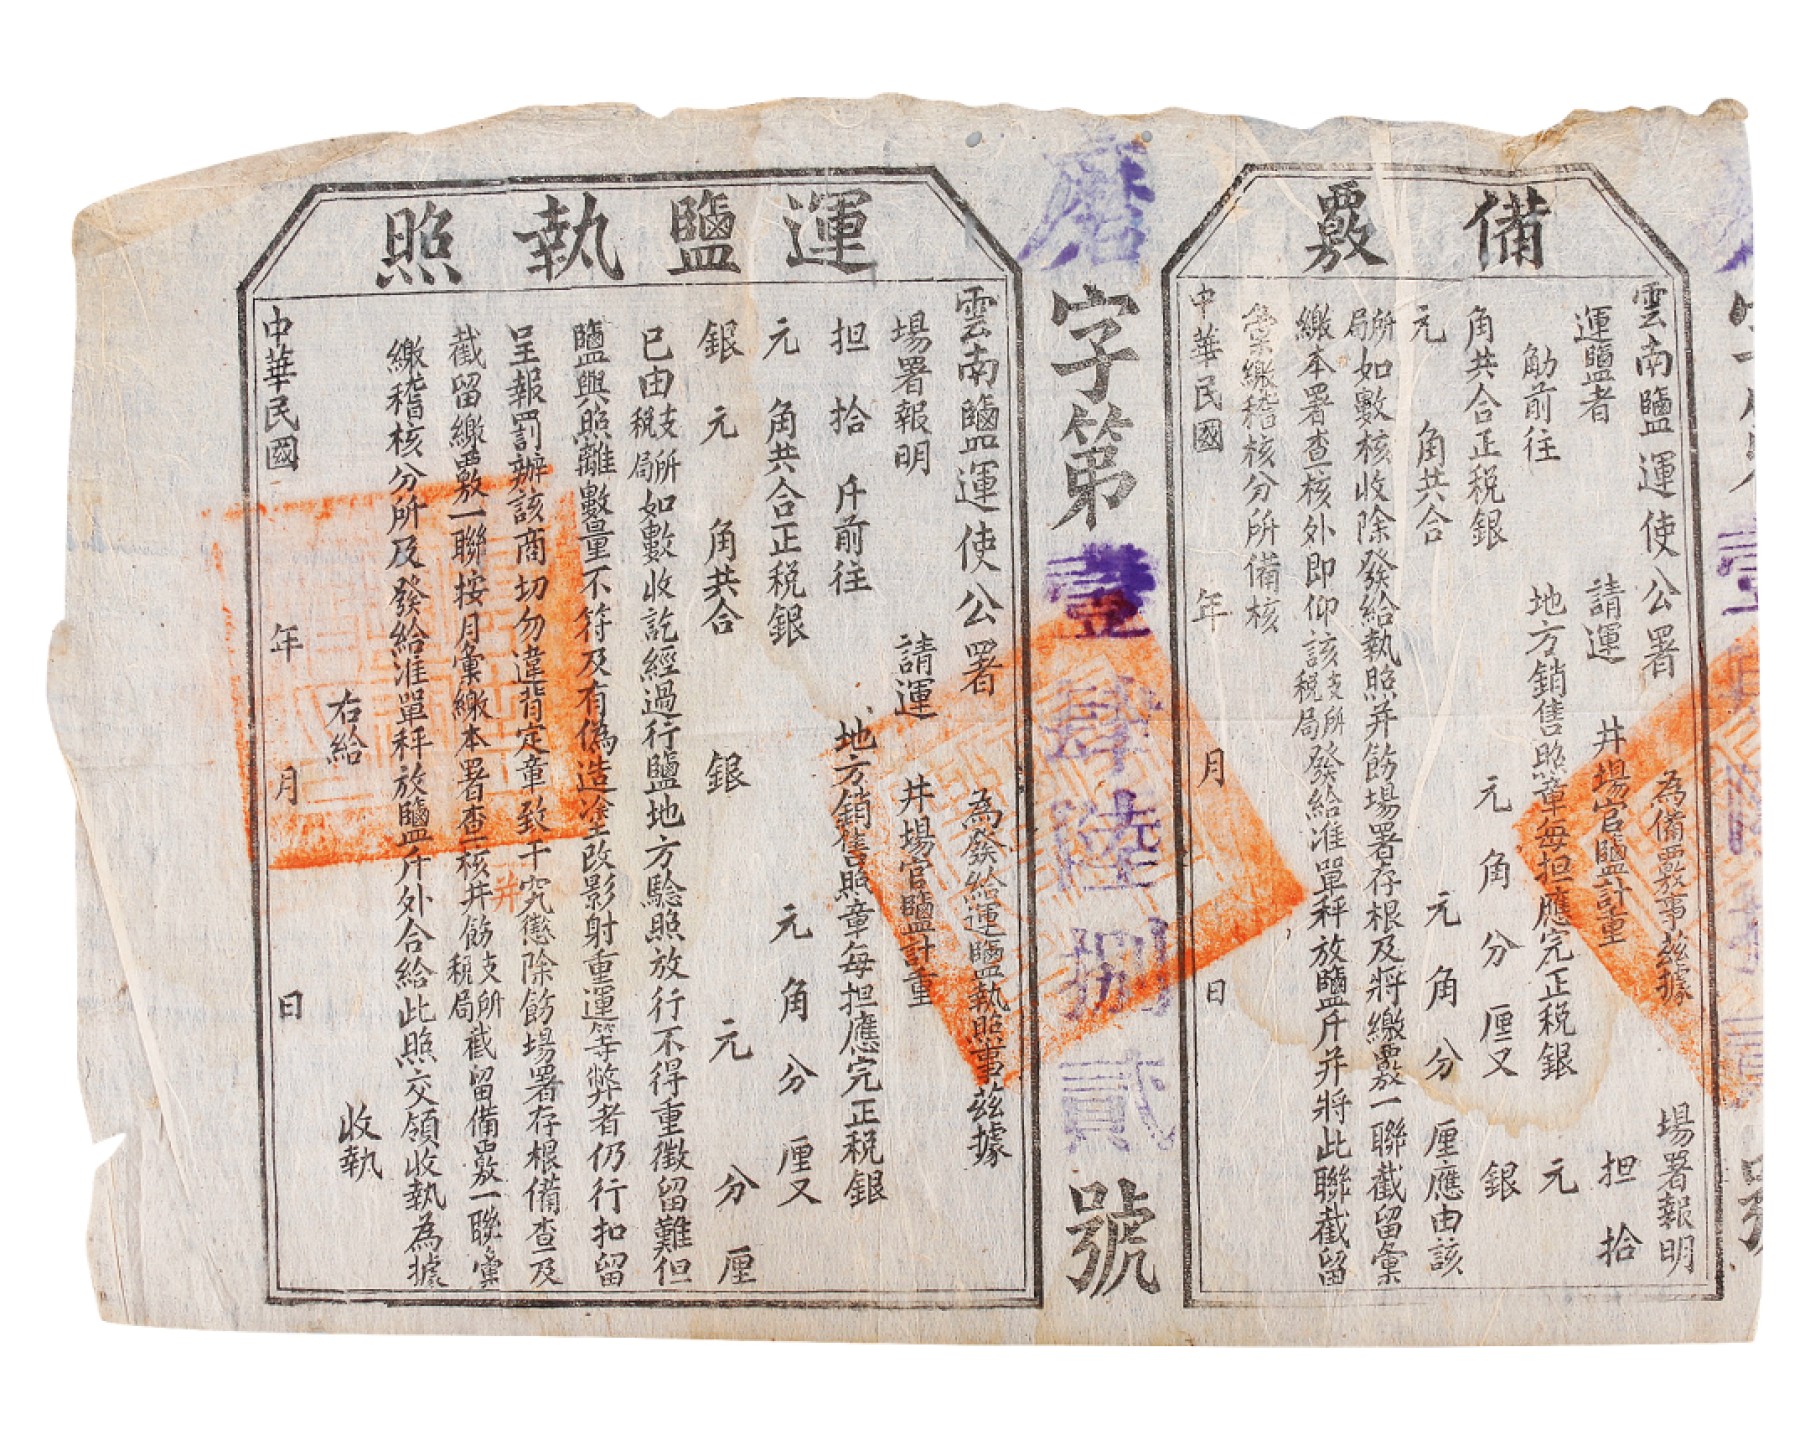 備覈
雲南鹽運使公署 為備覈事茲據 場署報明
運鹽者 請運 井場官鹽計重 担 拾
觔前往 地方銷售照章每担應完正税銀 元
角共合正税銀 元 角 分 厘又 銀
元 角共合 元 角 分 厘應由該
所局如數核收除發給執照并飭場署存根及將繳覈一聯截留彙
繳本署查核外即仰該支所税局發給准單秤放鹽斤并將此聯截留
彙繳稽核分所備核
中華民國 年 月 日
磨字第壹肆陸捌貳號
運鹽執照
雲南鹽運使公署 為發給運鹽執照事茲據
場署報明 請運 井場官鹽計重
担 拾 斤前往 地方銷售照章每担應完正税銀
元 角共合正税銀 元 角 分 厘又
銀 元 角共合 銀 元 分 厘
已由支所税局如數收訖經過行鹽地方驗照放行不得重徵留難但
鹽與照離數量不符及有偽造塗改影射重運等弊者仍行扣留
呈報罰辦該商切勿違背定章致干究懲除飭場署存根備查及
截留繳覈一聯按月彙繳本署查核并飭支所税局截留備覈一聯彙
繳稽核分所及發給准單秤放鹽斤外合給此照交領收執為據
右給 收執
中華民國 年 月 日